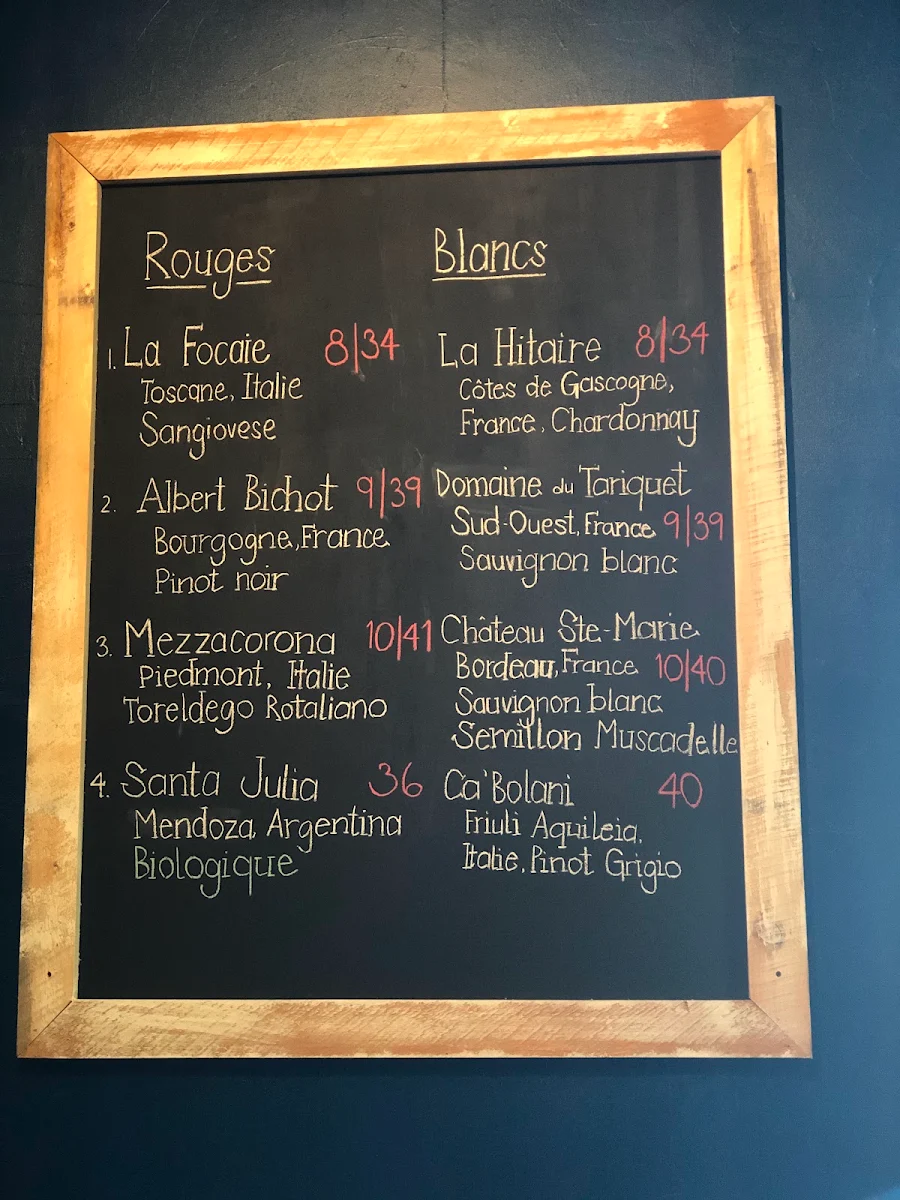 Rouges
1. La Focaie 8|34
Toscane, Italie
Sangiovese
2. Albert Bichot 9|39
Bourgogne, France
Pinot noir
3. Mezzacorona 10|41
Piedmont, Italie
Toreldego Rotaliano
4. Santa Julia 36
Mendoza, Argentina
Biologique
Blancs
La Hitaire 8|34
Côtes de Gascogne,
France, Chardonnay
Domaine du Tariquet
Sud-Ouest, France 9|39
Sauvignon blanc
Château Ste-Marie
Bordeau, France 10|40
Sauvignon blanc
Semillon Muscadelle
Ca'Bolani 40
Friuli Aquileia,
Italie, Pinot Grigio